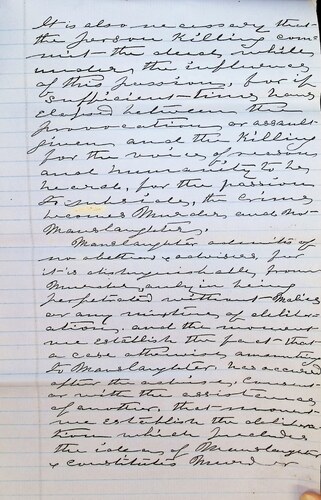 It is also necessary that
the person Killing com-
mit the deed, while
under the influence
of this passion, for if
sufficient time have
elapsed between the
provocation or assault
given and the Killing
for the voices of reason
and humanity to be
heard, for the passion
to subside, the crime
becomes Murder and not
Manslaughter.
Manslaughter admits of
no before & advises, for
it is distinguishable from
Murder, only in being
perpetrated without Malice
or any mixture of deliber-
ation, and the moment
we establish the fact that
a case otherwise amounting
to Manslaughter has occured
after the advise, Consent
or with the assistance
of another, that moment
we establish the delibera-
tion which precludes
the idea of Manslaughter
& constitutes Murder or